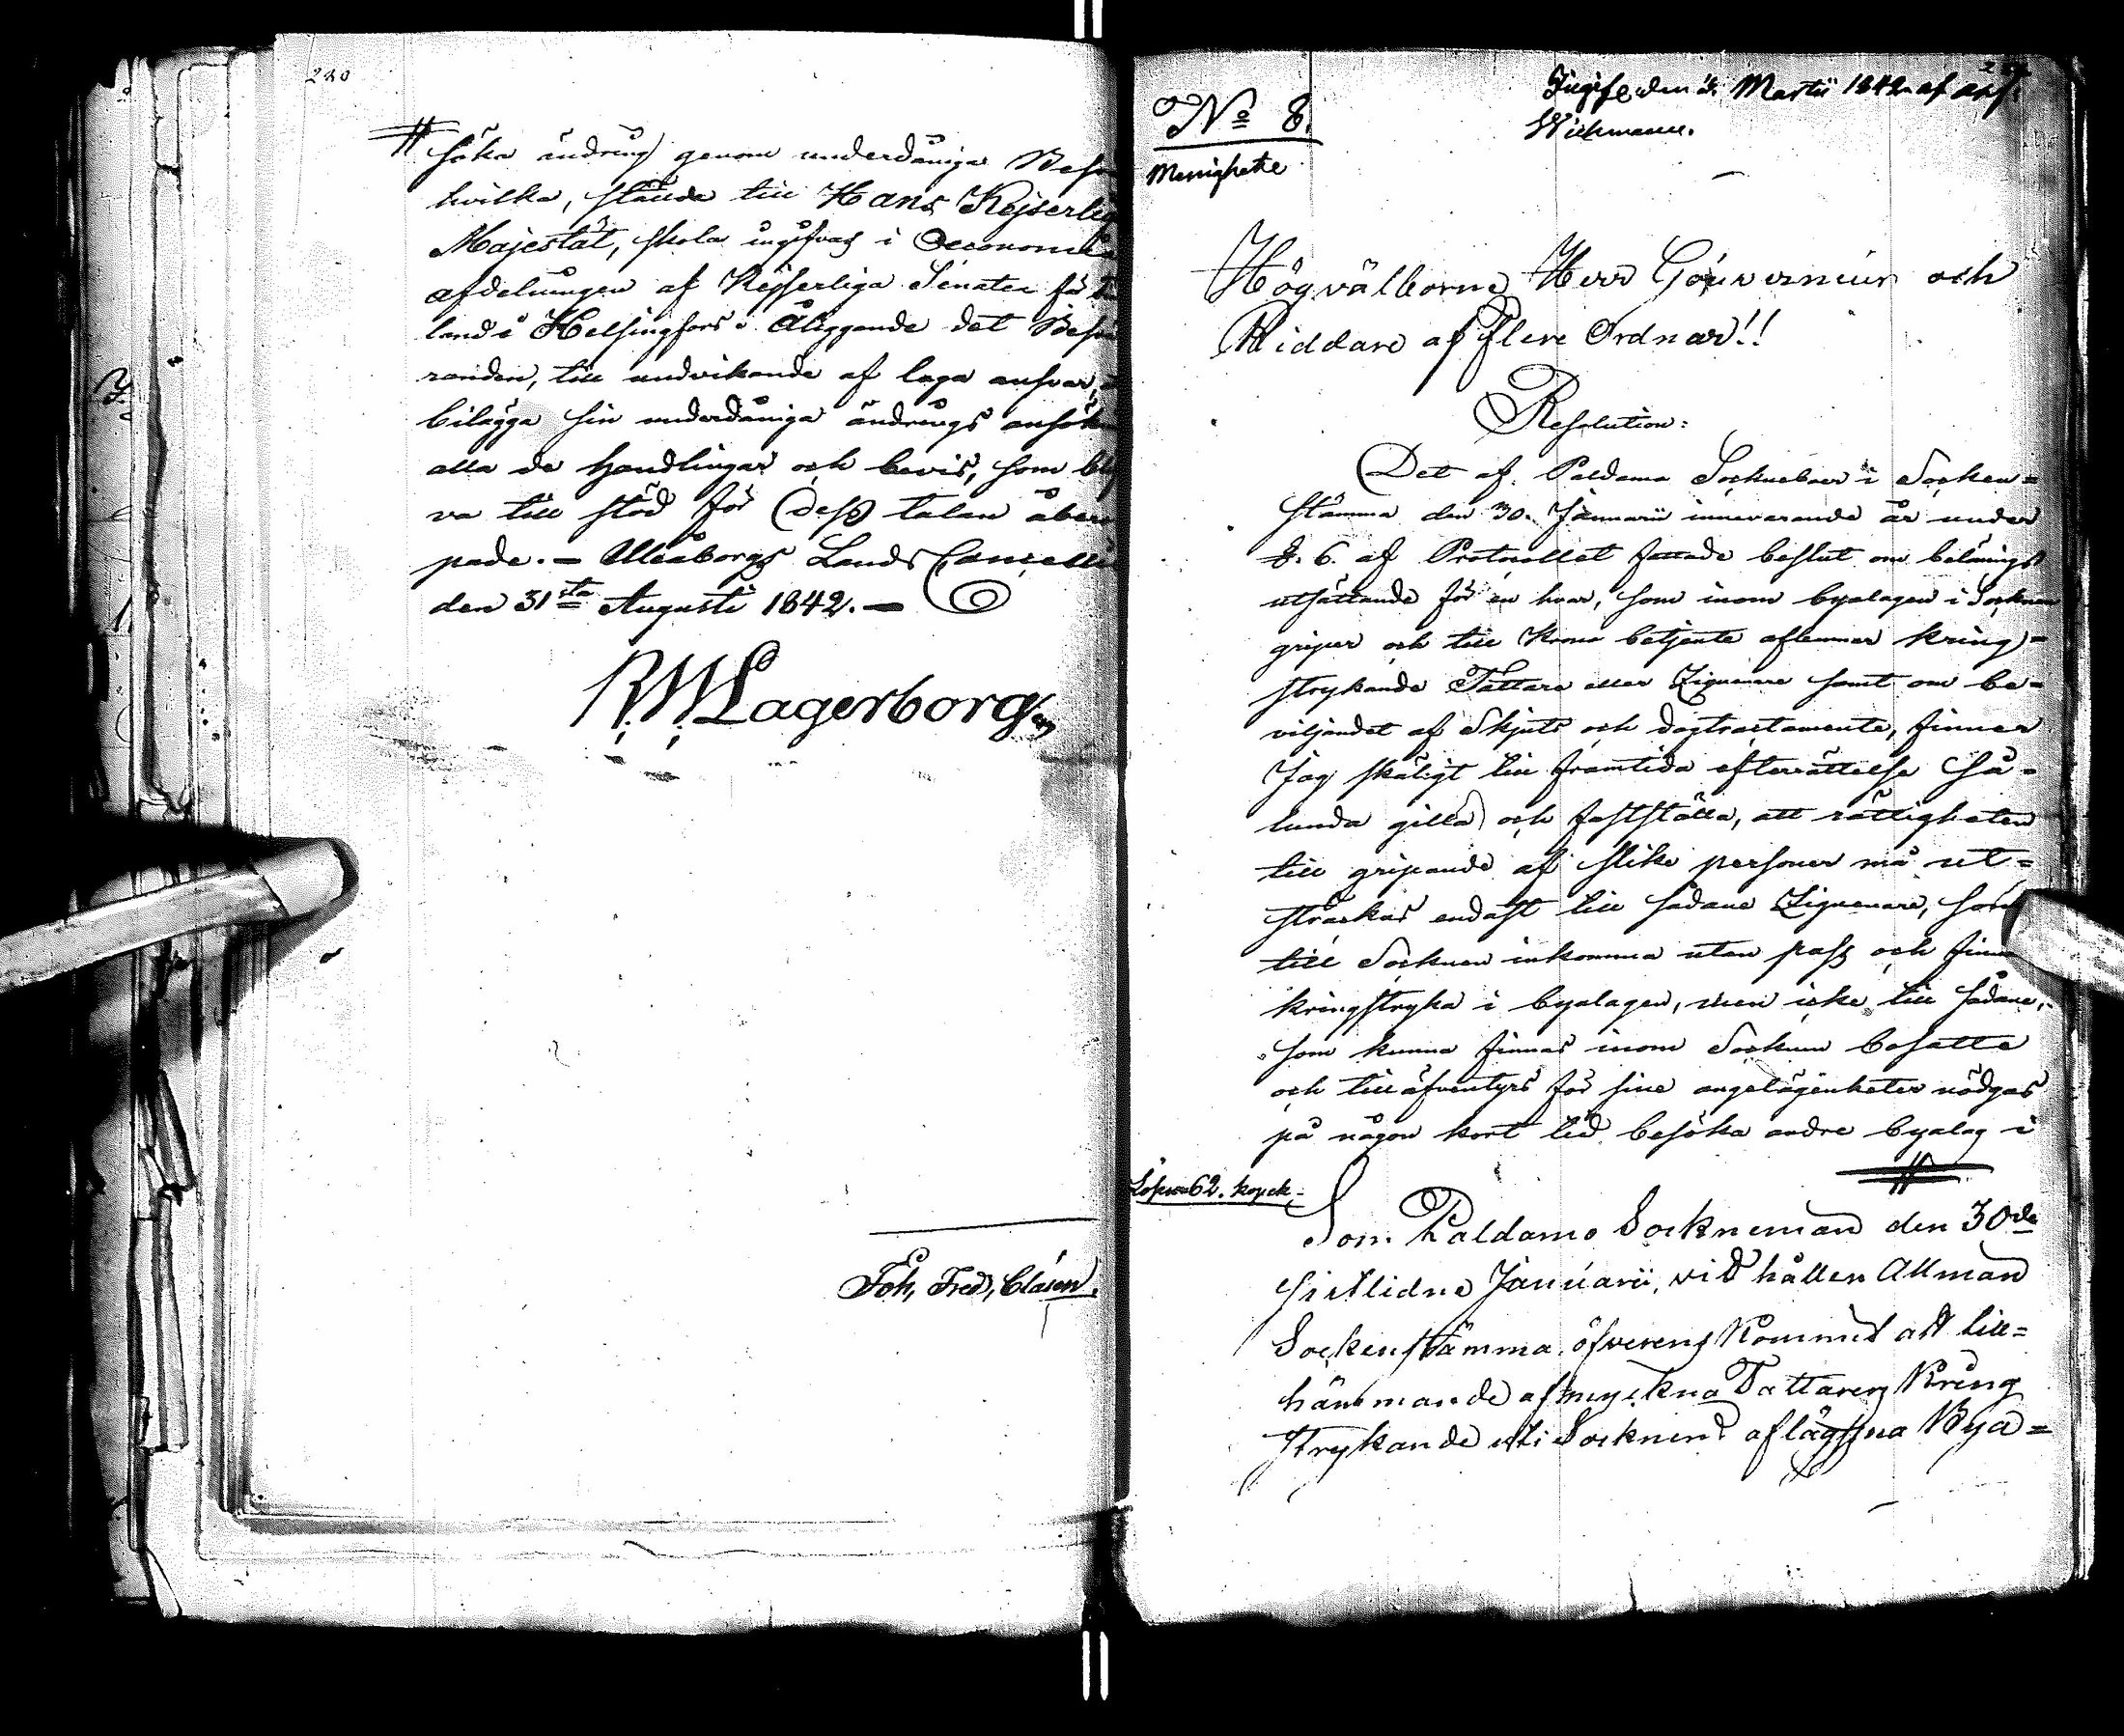 240
söka ändring genom underdåniga Besv
hvilka, stälda till Hans Kejserlig
Majestät, skola ingifvas i Oeconomie
afdelningen af Kejserliga Senaten för
land i Helsingfors. Åliggande det Besvä
randen, till undvikande af laga ansvar,
bilägga sin underdåniga ändrings ansökn
alla de handlingar och bevis, som bli
va till stöd för dess talan åbero
pade. - Uleåborgs Lands Cancellie
den 31sta Augusti 1842. -
R W Lagerborg
Joh, Fred, Clasen.
No 8.
Menighete
Ingifv den Martii 1842 af
Wichmann.
Högvälborne Herr Gouverneur och
Riddare af flere Ordnar!!
Resolution:
Det af Paldamo Sockneboer i Socken=
stämma den 30. Januarii innevarande år under
§. 6. af Protocollet fattade beslut om belönings
utsättande för en hvar, som inom byalagen i Socknen
griper och till Krono betjente aflemnar kring=
strykande Tattare eller Zigenare samt om be=
viljandet af Skjuts och dagtractamente, finner
Jag skäligt till framtida efterrättelse så=
lunda gilla och fastställa, att rättigheten
till gripande af slike personer må ut=
sträckas endast till sådane Zigenare, som
till Socknen inkomma utan pass och
kringstryka i byalagen, men icke till sådane,
som kunna finnas inom Socknen bosatte
och till äfventyrs för sine angelägenheter nödgas
på någon kort tid besöka andre byalag i
Lösen 62. kopek.
Som Paldamo Sockneman den 30de
sistlidne Januarii, vid hållen Allmän
Sockenstämma, öfverens kommit att till=
hämmande af myckna Tattares Kring
strykande uti Socknens aflägsna Bya=